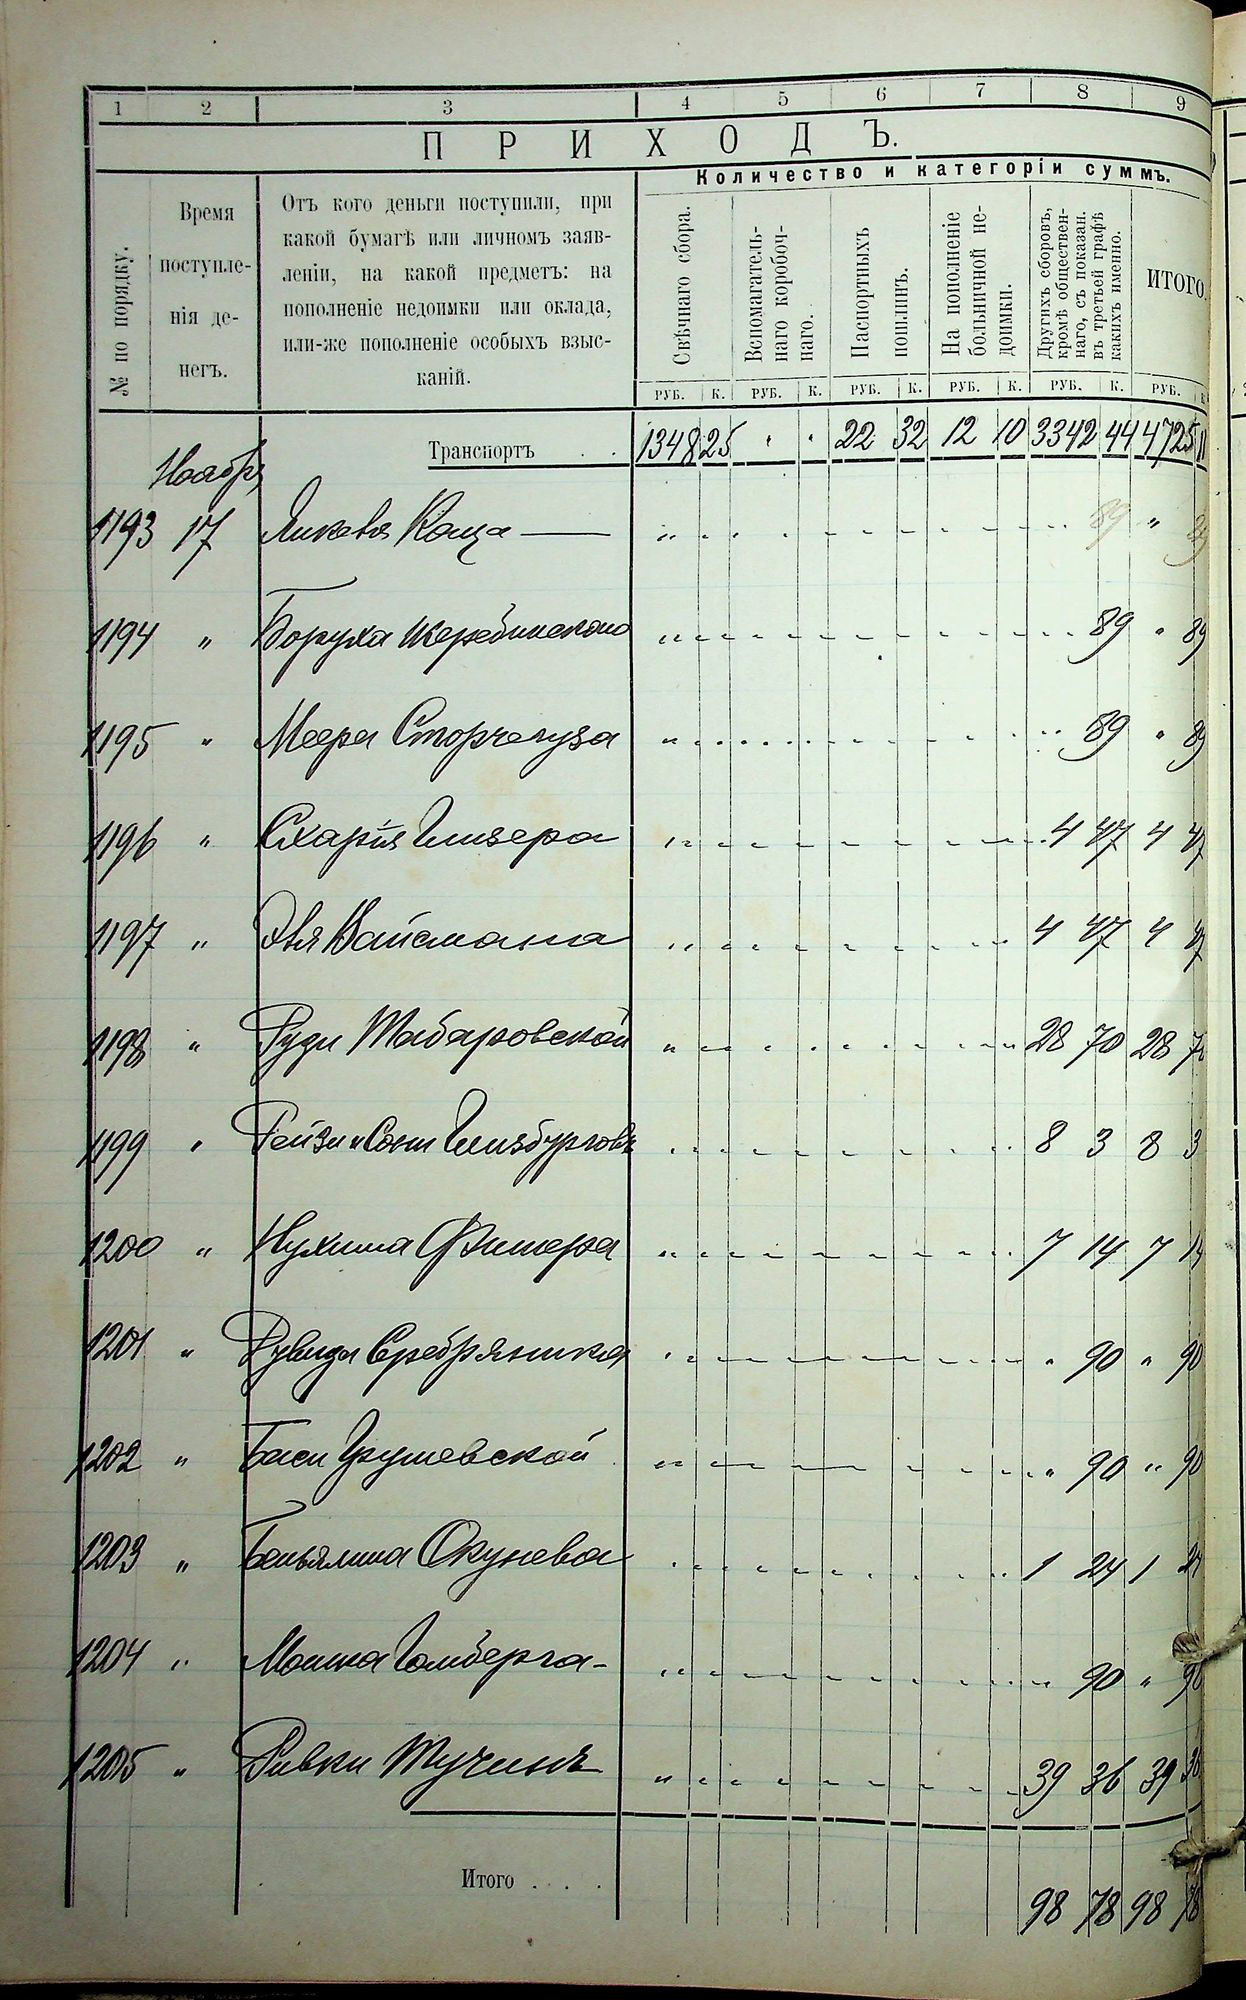 1 2 3 4 5 6 7 8 9
ПРИХОДЪ.
Количество и категоріи суммъ.
№ по порядку.
Время
поступле-
нія де-
негъ.
Отъ кого деньги поступили, при
какой бумагѣ или личномъ заяв-
леніи, на какой предметъ: на
пополненіе недоимки или оклада,
или-же пополненіе особыхъ взыс-
каній.
Свѣчнаго сбора.
Вспомагатель-
наго коробоч-
наго.
Паспортныхъ
пошлинъ.
На пополненіе
больничной не-
доимки.
Другихъ сборовъ,
кромѣ обществен-
наго, съ показан.
въ третьей графѣ
какихъ именно.
ИТОГО.
РУБ. К. РУБ. К. РУБ. К. РУБ. К. РУБ. К. РУБ.
Транспортъ . . 1348 25 " " 22 32 12 10 3342 44 4725 11
Ноябрь
1193 17 Янкеля Каца — 89 " 89
1194 " Боруха Жеребинскаго 89 " 89
1195 " Меера Сторчегуза 89 " 89
1196 " Схарія Гинзера 4 47 4 47
1197 " Эля Вайсмана 4 47 4 47
1198 " Руди Табаровской 28 70 28 70
1199 " Рейзи и Сони Гинзбурговъ 8 3 8 3
1200 " Нухима Фишера 7 14 7 14
1201 " Рувида Сребряника " 90 " 90
1202 " Баси Грушевской " 90 " 90
1203 " Беньямина Окунева 1 24 1 24
1204 " Мошка Гомберга - " 90 " 90
1205 " Ривки Тучинъ 39 36 39 36
Итого . . . 98 78 98 78